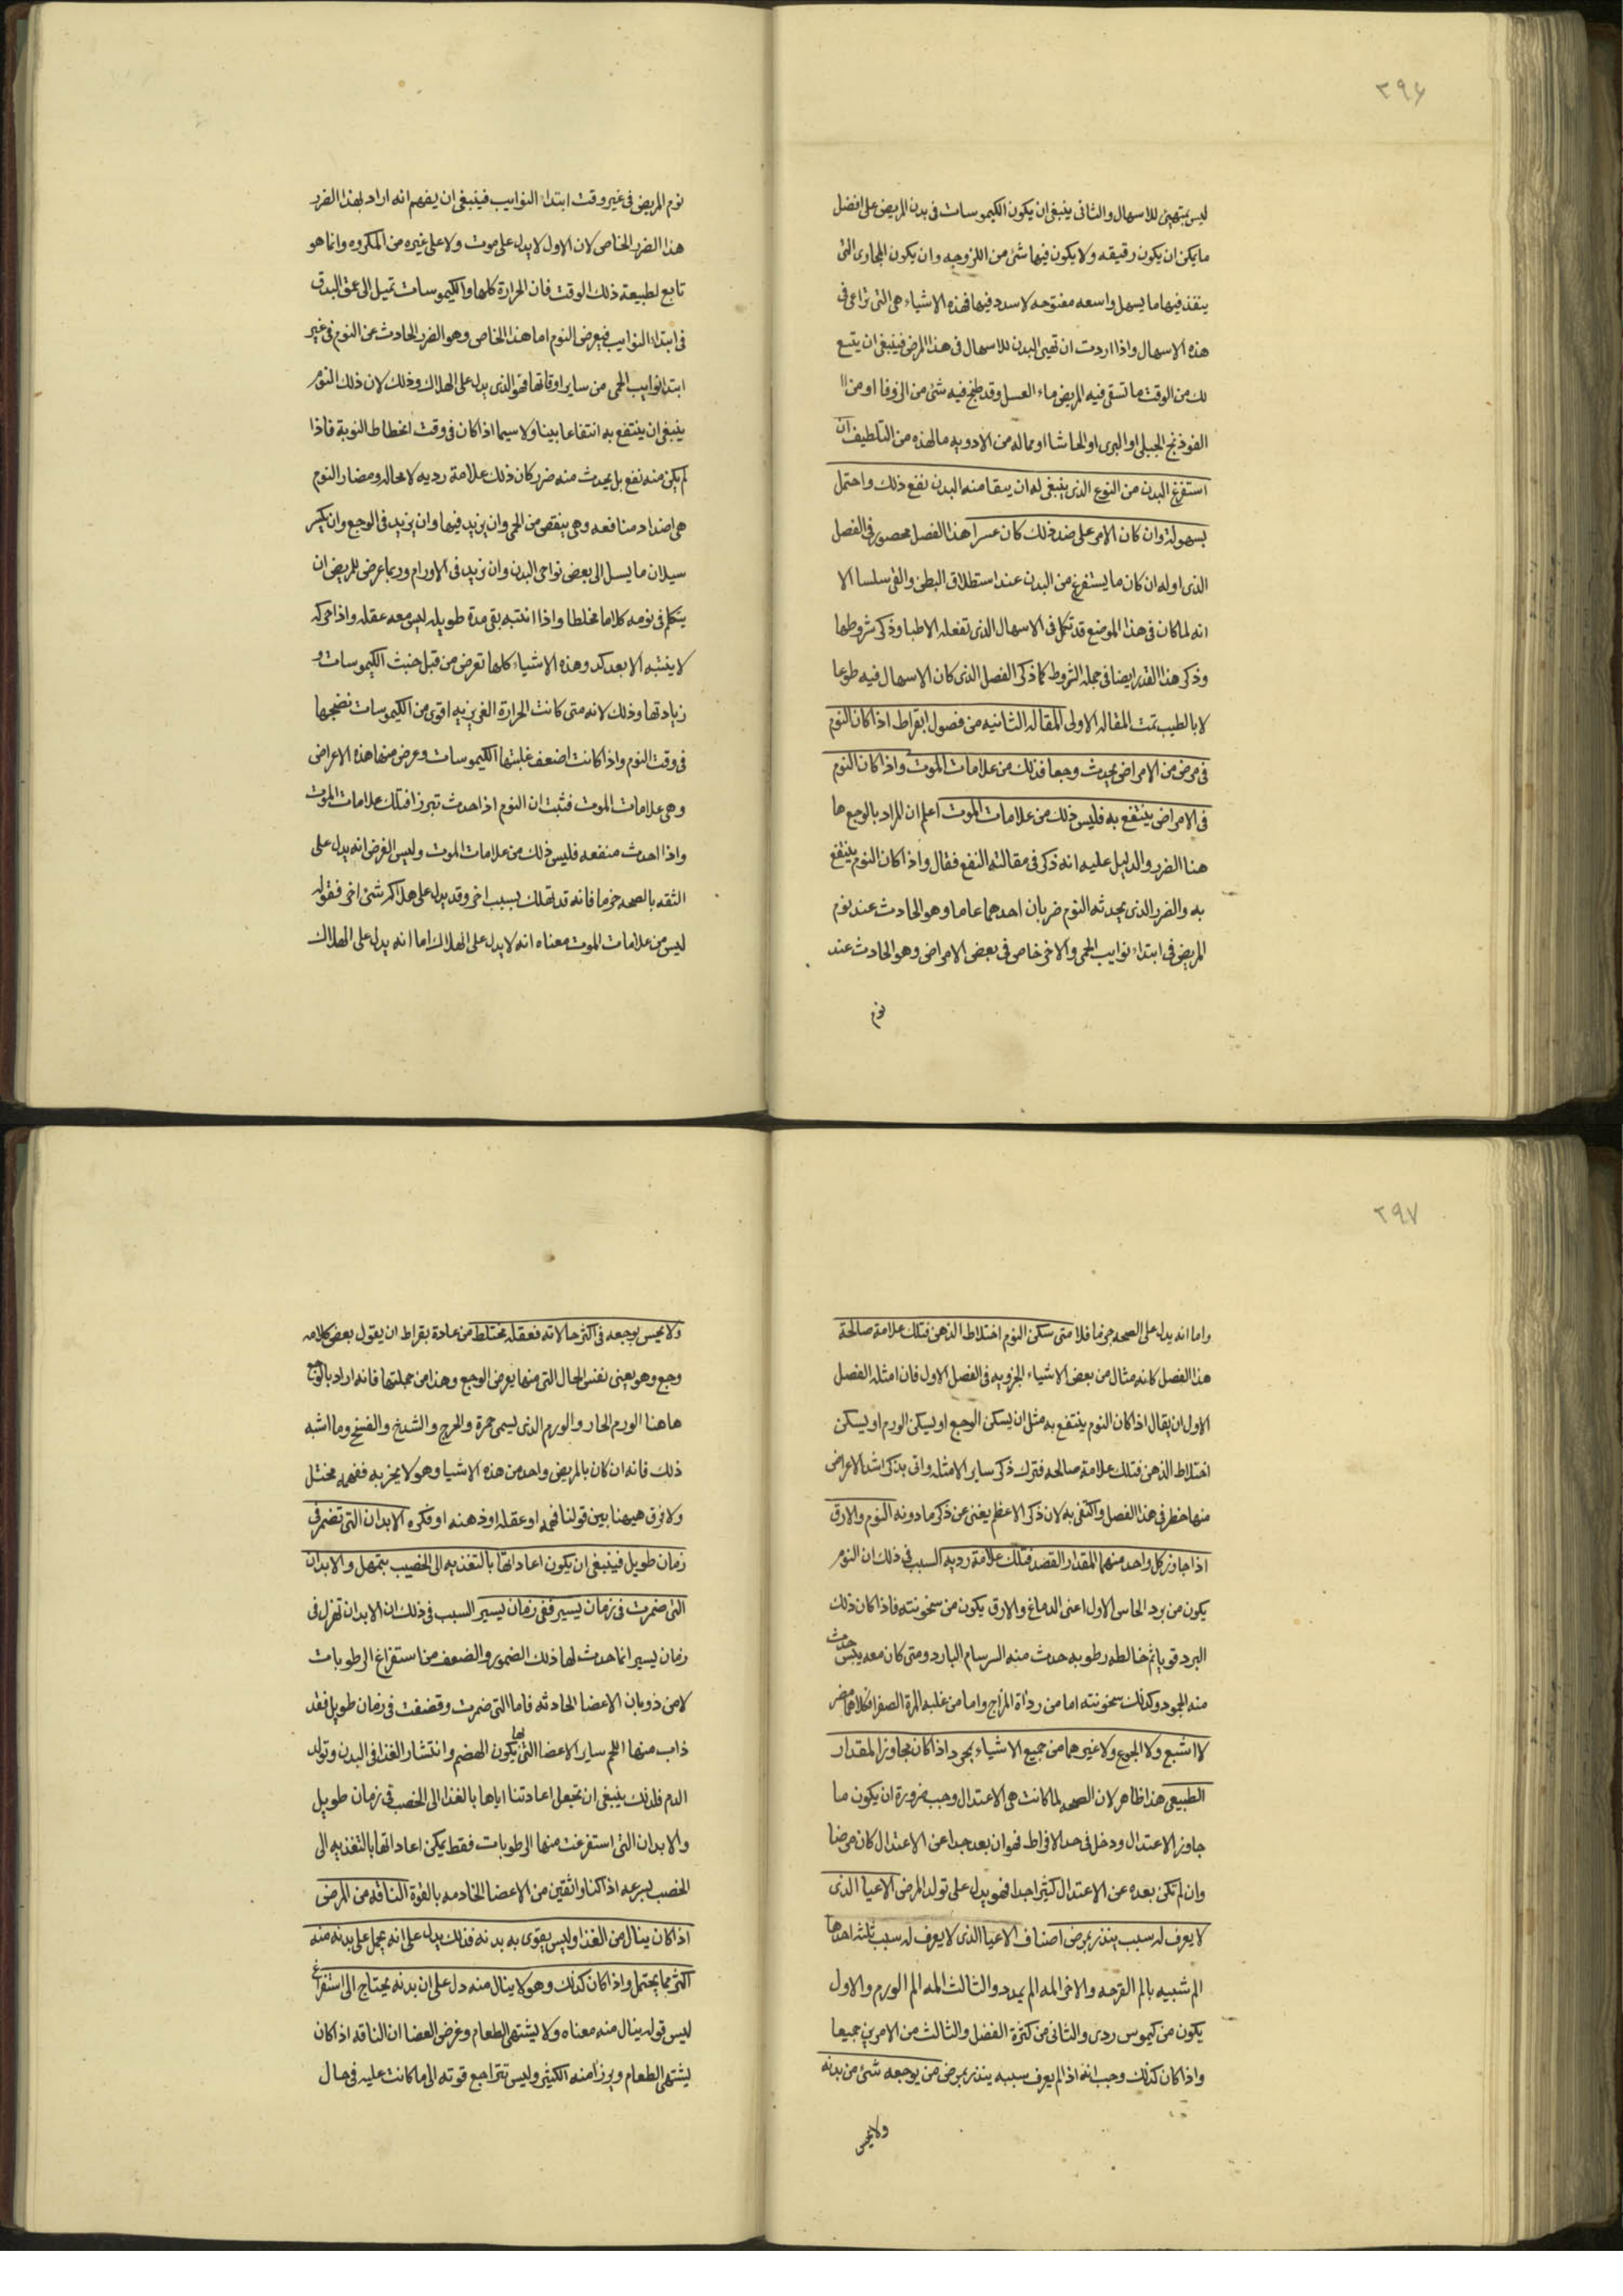 ٣٩٦
ليس بمتهيئ للاسهال والثانى ينبغى ان يكون الكيموسات فى بدن المريض على افضل
ما يمكن ان يكون رقيقه ولا يكون فيها شئ من اللزوجه وان يكون المجارى التى
ينفذ فيها ما يسهل واسعه مفتوحه لا سدد فيها فهذه الاشياء هى التى تراعى فى
هذه الاسهال واذا اردت ان تهيئ البدن للاسهال فى هذا المرض فينبغى ان يتبع
لك من الوقت ما تسقى فيه المريض ماء العسل وقد طبخ فيه شئ من الزوفا او من
الفوذنج الجبلى او البرى او الحاشا او مماله من الادويه ما لهذه من التلطيف ان
استفرغ البدن من النوع الذى ينبغى له ان ينقا منه البدن نفع ذلك واحتمل
بسهولة وان كان الامر على ضد ذلك كان عسرا هذا الفصل محصور فى الفصل
الذى اوله ان كان ما يستفرغ من البدن عند استطلاق البطن والقى سلسا الا
انه لما كان فى هذا الموضع قد تكلم فى الاسهال الذى تفعله الاطبا وذكر شروطها
وذكر هذا القدر ايضا فى جمله الشروط كما ذكر الفصل الذى كان الاسهال فيه طوعا
لا بالطبيب تمت المقاله الاولى المقاله الثانيه من فصول ابقراط اذا كان النوم
فى مرض من الامراض يحدث وجعا فذلك من علامات الموت واذا كان النوم
فى الامراض ينتفع به فليس ذلك من علامات الموت اعلم ان المراد بالوجع ها
هنا الضرر والدليل عليه انه ذكر فى مقالته النفع فقال واذا كان النوم ينتفع
به والضرر الذى يحدثه النوم ضربان احدهما عاما وهو الحادث عند نوم
المريض فى ابتداء نوايب الحمى والاخر خاص فى بعض الامراض وهو الحادث عند
نوم
نوم المريض فى غير وقت ابتداء النوايب فينبغى ان يفهم انه اراد بهذا الضرر
هذا الضرر الخاص لان الاول لا يدل على موت ولا على غيره من المكروه وانما هو
تابع لطبيعة ذلك الوقت فان الحرارة كلها والكيموسات تميل الى عمق البدن
فى ابتداء النوايب فيعرض النوم اما هذا الخاص وهو الضرر الحادث عن النوم فى غير
ابتدا نوايب الحمى من ساير اوقاتها فهو الذى يدل على الهلاك وذلك لان ذلك النوم
ينبغى ان ينتفع به انتفاعا بينا ولا سيما اذا كان فى وقت انحطاط النوبة فاذا
لم يكن منه نفع بل يحدث منه ضرر كان ذلك علامة رديه لا محاله ومضار النوم
هى اضداد منافعه وهى ينقص من الحمى وان يزيد فيها وان يزيد فى الوجع وان يكثر
سيلان ما يسل الى بعض نواحى البدن وان يزيد فى الاورام وربما عرض للمريض ان
يتكلم فى نومه كلاما مخلطا واذا انتبه بقى مدة طويله ليس معه عقله واذا حركه
لا ينتبه الا بعد كد وهذه الاشياء كلها تعرض من قبل خبث الكيموسات و
زيادتها وذلك لانه متى كانت الحرارة الغريزيه اقوى من الكيموسات نضجتها
فى وقت النوم واذا كانت اضعف غلبتها الكيموسات وعرض منها هذه الاعراض
وهى علامات الموت فثبت ان النوم اذا حدث تبرز افتلك علامات الموت
واذا احدث منفعه فليس ذلك من علامات الموت وليس الغرض انه يدل على
الثقه بالصحه جزما فانه قد تهلك بسبب اخر وقد يدل على هلاكه شئ اخر فقوله
ليس من علامات الموت معناه انه لا يدل على الهلاك اما انه يدل على الهلاك
٣٩٧
واما انه يدل على الصحه جزما فلا متى سكن النوم اختلاط الذهن فتلك علامة صالحة
هذا الفصل كانه مثال من بعض الاشياء الجزويه فى الفصل الاول فان امثله الفصل
الاول ان يقال اذا كان النوم ينتفع به مثل ان يسكن الوجع او يسكن الورم او يسكن
اختلاط الذهن فتلك علامة صالحه فترك ذكر ساير الامثله واتى بذكر اشد الاعراض
منها خطر فى هذا الفصل واكتفى به لان ذكر الاعظم يغنى عن ذكر ما دونه النوم والارق
اذا جاوز كل واحد منهما المقدار القصد فتلك علامة رديه السبب فى ذلك ان النوم
يكون من برد الحاس الاول اعنى الدماغ والارق يكون من سخونته فاذا كان ذلك
البرد قويا ثم خالطه رطوبه حدث منه السرسام البارد ومتى كان معه يبس حدث
منه الجمود وكذلك سخونته اما من رداة المزاج واما من غلبه المرة الصفرا فكلاهما مضر
لا الشبع ولا الجوع ولا غيرهما من جميع الاشياء بمحمود اذا كان مجاوز المقدار
الطبيعى هذا ظاهر لان الصحه لما كانت هى الاعتدال وجب ضرورة ان يكون ما
جاوز الاعتدال ودخل فى حد الافراط فهو ان بعد جدا عن الاعتدال كان مرضا
وان لم تكن بعده عن الاعتدال كثيرا جدا فهو يدل على تولد المرض الاعيا الذى
لا يعرف له سبب ينذر بمرض اصناف الاعيا الذى لا يعرف له سبب ثلثه احدها
الم شبيه بالم القرحه والاخر المه الم يمدد والثالث المه الم الورم والاول
يكون من كيموس ردى والثانى من كثرة الفضل والثالث من الامرين جميعا
واذا كان كذلك وجب انه اذا لم يعرف سببه ينذر بمرض من يوجعه شئ من بدنه
ولا يحس
ولا يحس بوجعه فى اكثر حالاته فعقله مختلط من عادة بقراط ان يقول بعض كلامه
وجع وهو يعنى نفس الحال التى منها يعرض الوجع وهذا من جملتها فانه اراد بالوجع
هاهنا الورم الحار والورم الذى يسمى حمرة والجرح والشدخ والفسخ وما اشبه
ذلك فانه ان كان بالمريض واحد من هذه الاشيا وهو لا يخبر به ففهمه مختل
ولا فرق هيهنا بين قولنا فهمه او عقله او ذهنه او فكره الابدان التى تضمر فى
زمان طويل فينبغى ان يكون اعادتها بالتغذيه الى الخصب بتمهل والابدان
التى ضمرت فى زمان يسير ففى زمان يسير السبب فى ذلك ان الابدان تهزل فى
زمان يسير انما حدث لها ذلك الضمور والضعف من استفراغ الرطوبات
لا من ذوبان الاعضا الحادثه فاما التى ضمرت وقضفت فى زمان طويل فقد
ذاب منها اللحم ساير الاعضا التى بها يكون الهضم وانتشار الغذا فى البدن وتولد
الدم فلذلك ينبغى ان تجعل اعادتنا اياها بالغذا الى الخصب فى زمان طويل
والابدان التى استفرغت منها الرطوبات فقط يمكن اعادتها بالتغذيه الى
الخصب بسرعه اذا كنا واثقين من الاعضا الخادمه بالقوة الناقه من المرض
اذا كان ينال من الغذا وليس يقوى به بدنه فذلك يدل على انه يحمل على بدنه منه
اكثر مما يحتمل واذا كان كذلك وهو لا ينال منه دل على ان بدنه يحتاج الى استفراغ
ليس قوله ينال منه معناه ولا يشتهى الطعام وغرض العضا ان الناقه اذا كان
يشتهى الطعام ويرزا منه الكثير وليس تتراجع قوته الى ما كانت عليه فى حال